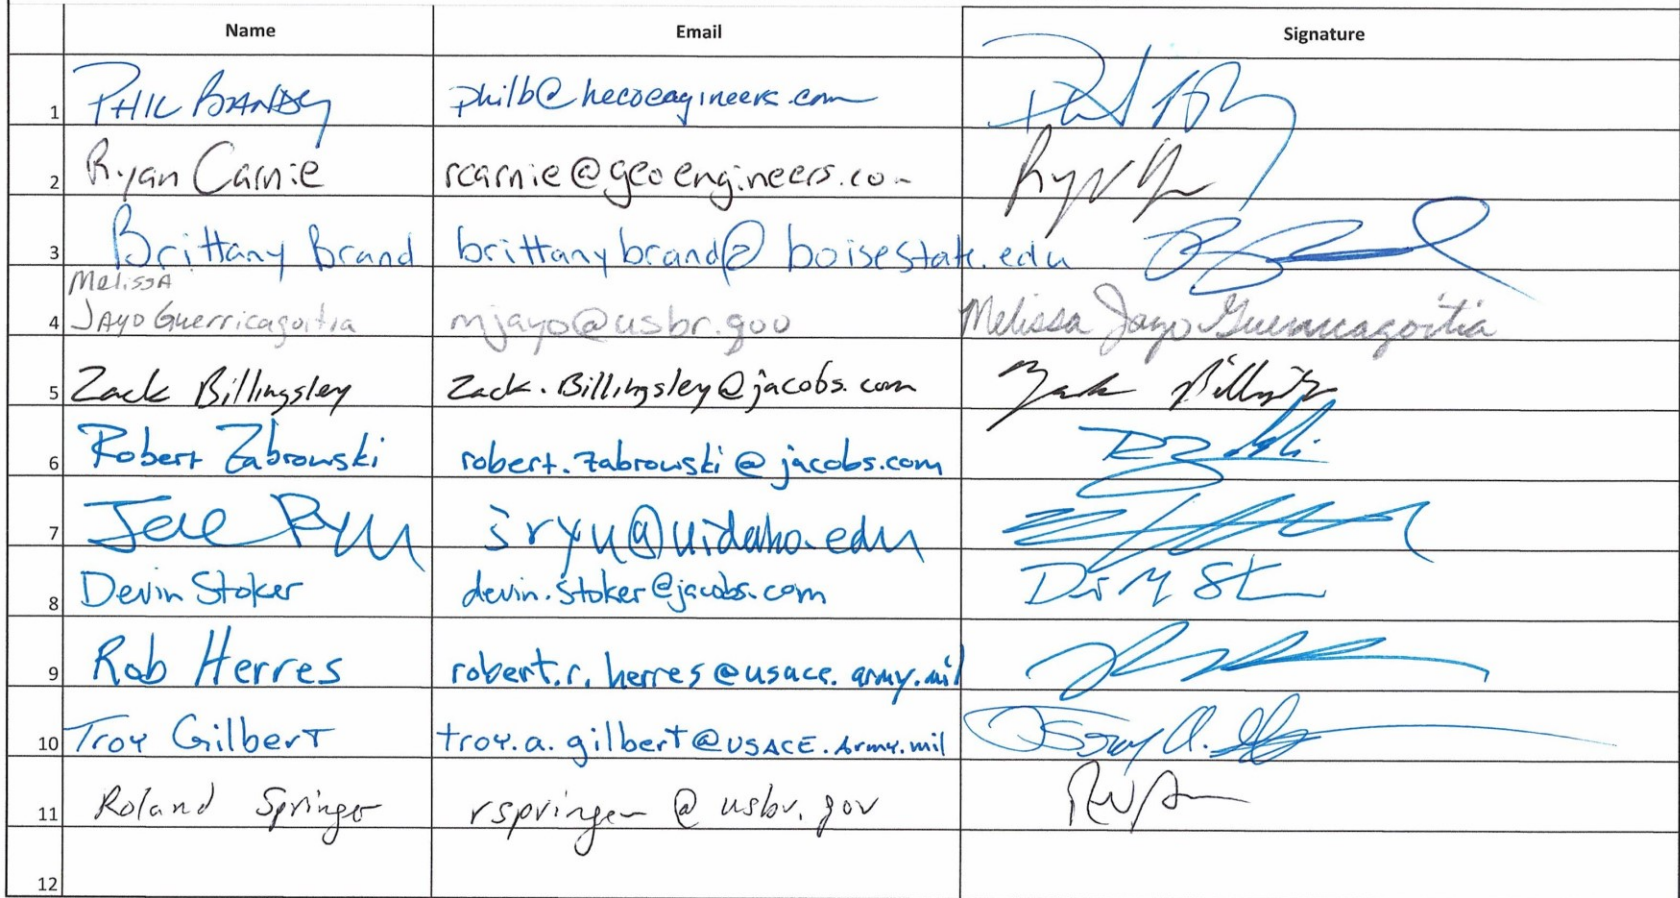 Name Email Signature
1 PHIL philb@hecoengineers.com
2 Ryan Carnie rcarnie@geoengineers.co
3 Brittany Brand brittanybrand@boisestate.edu
Melissa
4 JAYO Guerricagoitia mjayo@usbr.gov Melissa Jayo Guerricagoitia
5 Zack Billingsley Zack.Billingsley@jacobs.com Zack Billingsley
6 Robert Zabrowski robert.zabrowski@jacobs.com
7 Jae Ryu jryu@uidaho.edu
8 Devin Stoker devin.stoker@jacobs.com
9 Rob Herres robert.r.herres@usace.army.mil
10 Troy Gilbert troy.a.gilbert@USACE.Army.mil
11 Roland Springer rspringer@usbr.gov
12